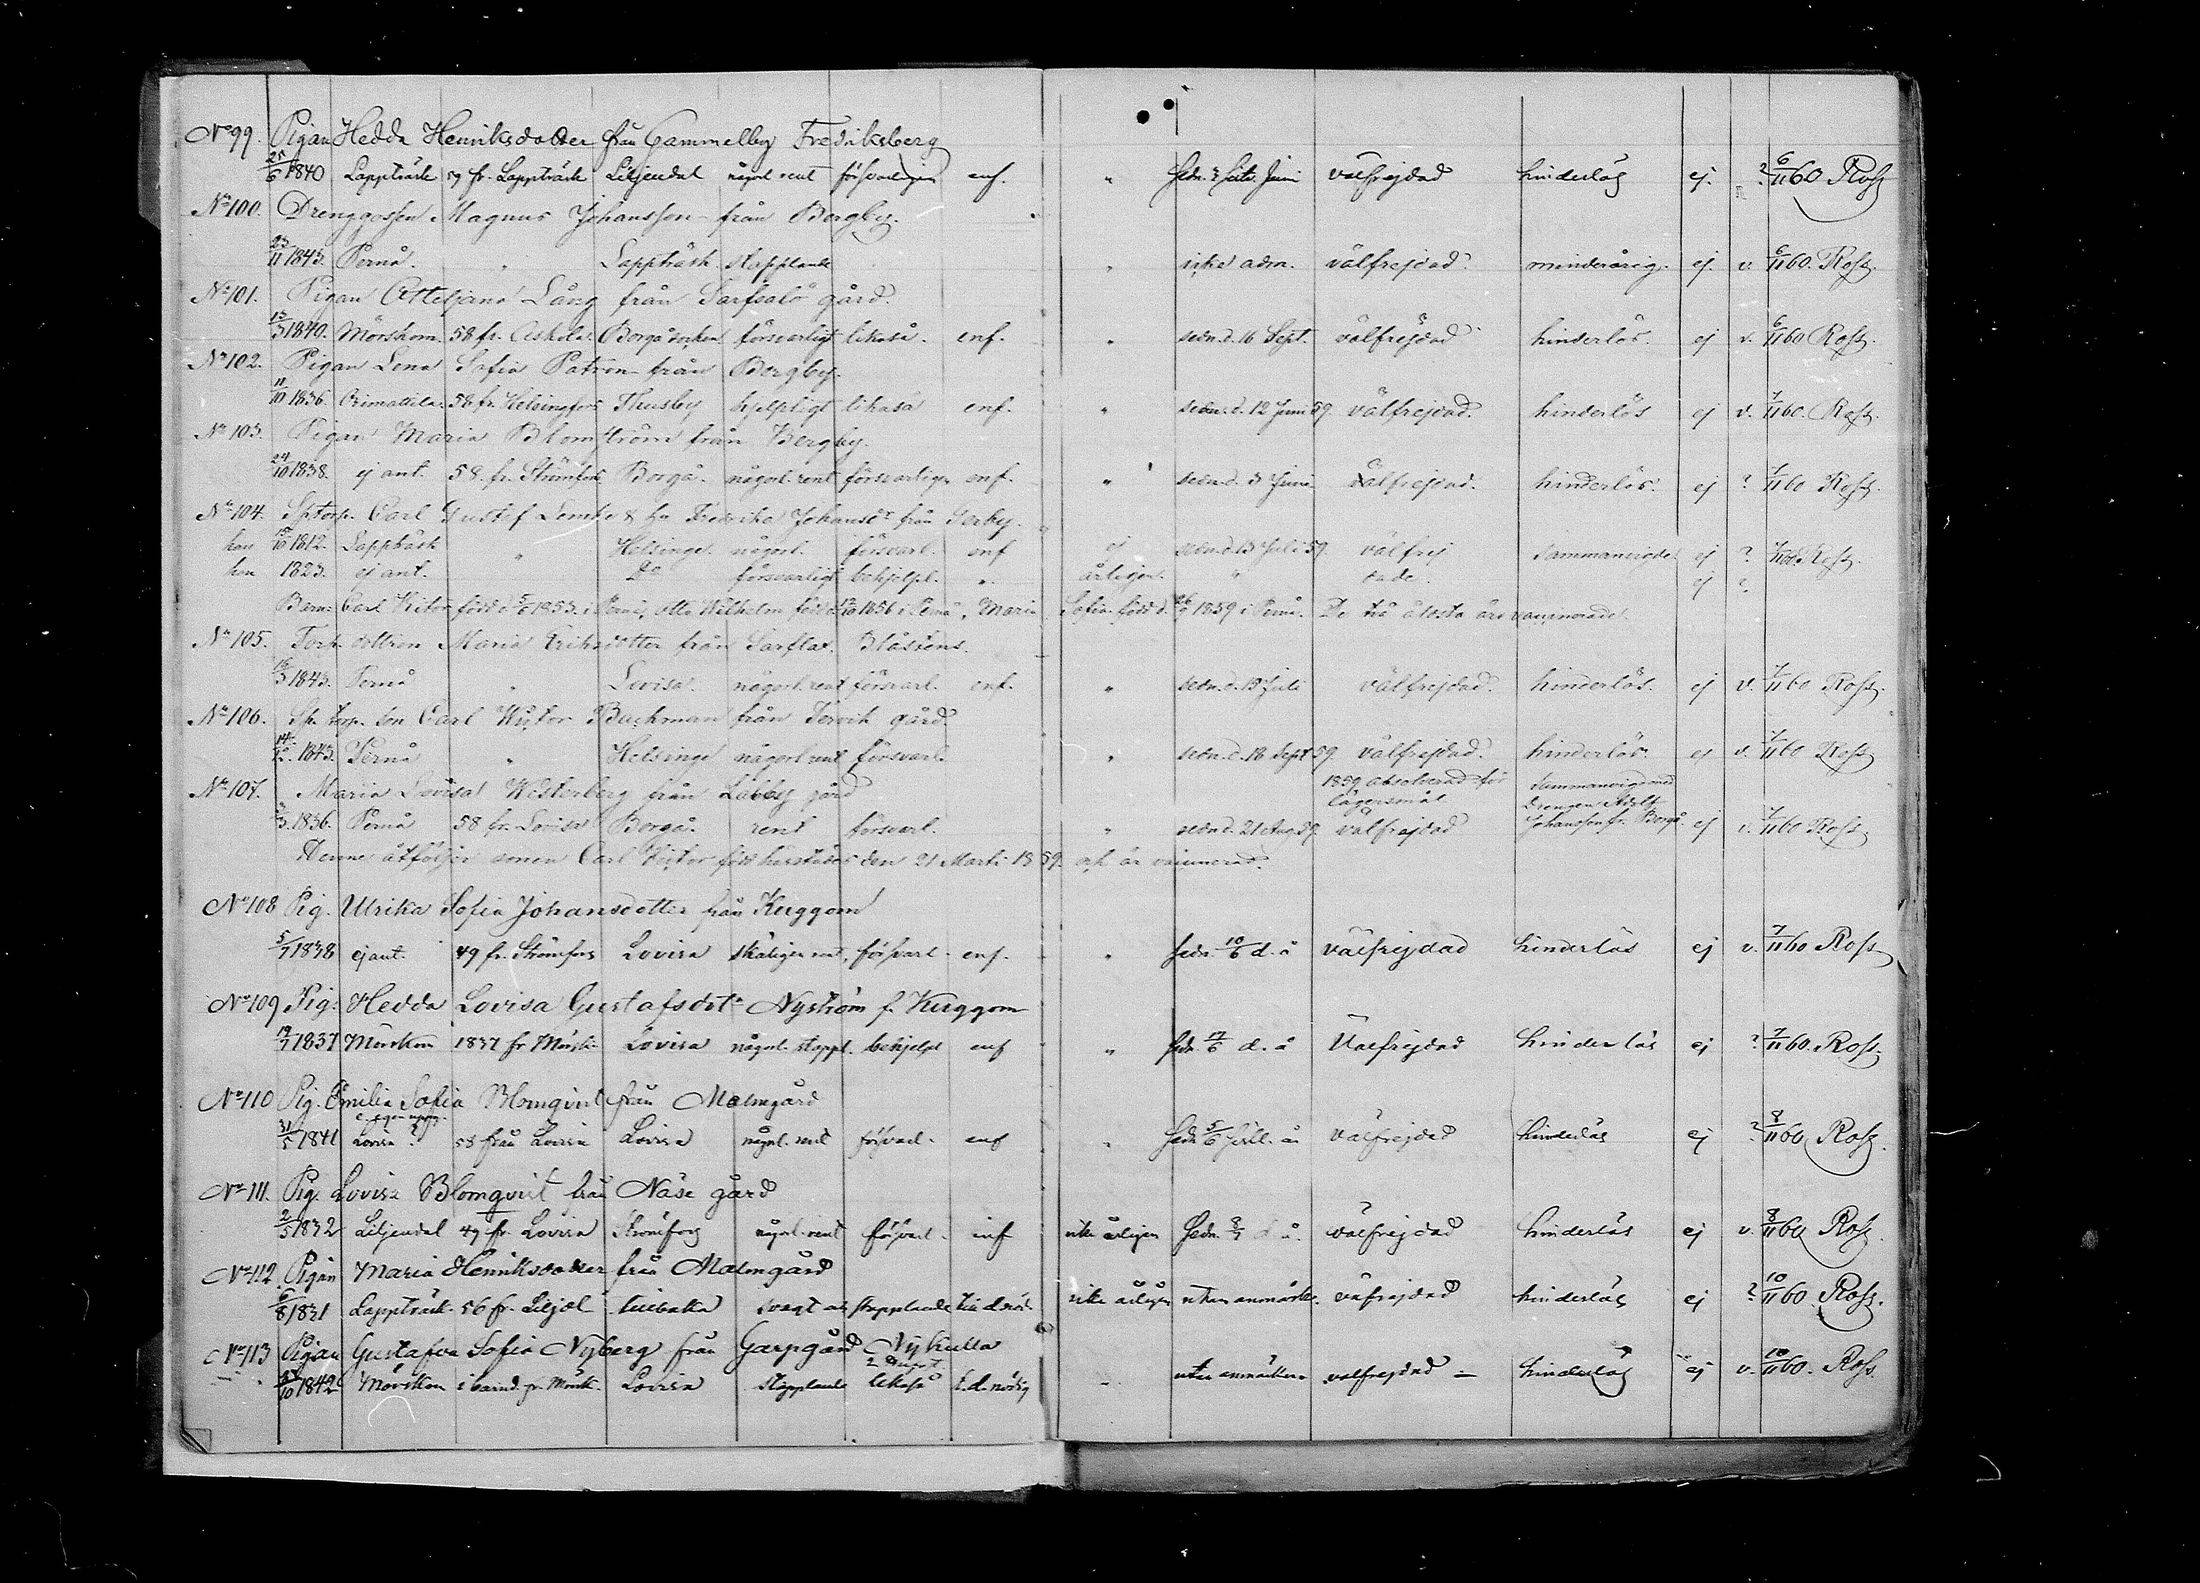 No 99. Pigan Hedda Henriksdotter från Gammelby Fredriksberg
25/6 1840 Lappträsk 59 fr. Lappträsk Liljendal någorl. rent försvarligen enf. " sedn. 3 sistl. Juni välfrejdad hinderlös ej. ? 6/11 60 Rosz
No 100. Drenggossen Magnus Johansson från Bergby.
23/11 1843. Perno. " Lappträsk stapplande " icke adm. välfrejdad. minderårig. ej. v. 6/11 60. Rosz.
No 101. Pigan Långfrån Sarfsalö gård.
13/3 1840. Mörskom. 58 fr. Askola. Borgå socken försvarligt likaså. enf. " sedn. d. 16 Sept. välfrejdad hinderlös. ej v. 6/11 60 Rosz.
No 102. Pigan Lena Sofia Patron från Bergby.
11/10 1836 Orimattila. 58 fr. Helsingfors Thusby hjelpligt likaså enf. " sedn. d. 12 Juni 59 välfrejdad. hinderlös ej v. 7/11 60. Rosz.
No 103. Pigan Maria Blomström från Bergby.
24/10 1838. ej ant. 58. fr. Strömfors Borgå. någorl. rent försvarligen enf. " sedn. d. 3 Juni välfrejdad. hinderlös. ej ? 7/11 60 Rosz.
No 104. Sptorp. Carl Gustaf & hu Fredrika Johansdr från
han 1812. Lappträsk " Helsinge någorl. försvarl. enf ej sedn. d. 13 Juli 59 välfrej sammanvigde. ej ? 7/11 60. Rosz.
hon 1823. ej ant. Do försvarligt behjelpl. " årligen. " dade. ej ?
Barn: Carl Victor född d. 5/6 1853. i Perno, Otto Wilhelm född d. 1856 i Perno, Maria Sofia född d. 26/9 1859 i Perno. De två äldsta äro vaccinerade.
No 105. Torp. dottren Maria Eriksdotter från Sarflax. Blåstens.
1843. Perno " Lovisa. någorl. rent försvarl. enf. " sedn. d. 19 Juli välfrejdad. hinderlös. ej v. 7/11 60 Rosz.
No 106. Sp. torp. son Carl Wictor Bachman från Tervik gård.
14/12 1843. Perno " Helsinge någorl. rent försvarl. " sedn. d. 16 Sept 59. välfrejdad. hinderlös. ej v. 7/11 60 Rosz
No 107. Maria Lovisa Westerberg från Labby gård 1859 absolverad för lägersmål sammanvigd med Drengen Adolf
1836. Perno 58 fr. Lovisa Borgå. rent försvarl. " sedn d. 21 Aug. 59. välfrejdad Johansson fr. Borgå. ej v. 7/11 60 Rosz
Denne åtföljer sonen Carl Victor född härstädes den 21 Marti 1859. och är vaccinerad.
No 108 Pig. Ulrika Sofia Johansdotter från Kuggom
5/7 1838 ej ant. 49 fr. Strömfors Lovisa skäligen rent, försvarl. enf. " sedn. 10/6 d. å välfrejdad hinderlös ej v. 7/11 60 Rosz
No 109 Pig: Hedda Lovisa Gustafsdtr Nyström f. Kuggom
19/7 1837 Mörskom 1837 fr Mörsk. Lovisa någorl. stappl. behjelpl enf " sedn. 17/6 d. å Välfrejdad hinderlös ej ? 7/11 60. Rosz.
No 110 Pig. Emilia Sofia Blomqvist från Malmgård
e. egen uppg.
31/5 1841 Lovisa ? 58 från Lovisa Lovisa någorl. rent försvarl. enf " sedn 5/6 sistl. år välfrejdad hinderlös ej ? 8/11 60 Rosz.
No 111. Pig. Lovisa Blomqvist från Näse gård
2/5 1832 Liljendal 49 fr. Lovisa Strömfors någorl. rent försvarl. enf icke årligen sedn. 8/7 d å. välfrejdad hinderlös ej v. 8/11 60 Rosz.
No 112 Pigan Maria Henriksdotter från Malmgård
6/8 1831 Lappträsk. 56 fr. Liljdl svagt och stapplande till d. nöd. icke årligen utan anmärkn. välfrejdad hinderlös ej ? 10/11 60. Rosz.
No 113 Pigan Gustafva Sofia Nyberg från Garpgård Nykulla
1842 Mörskom i barnd. fr. Mörsk. Lovisa stapplande likaså t. d. nödig " utan anmärkn. välfrejdad – hinderlös ej v. 10/11 60. Rosz.